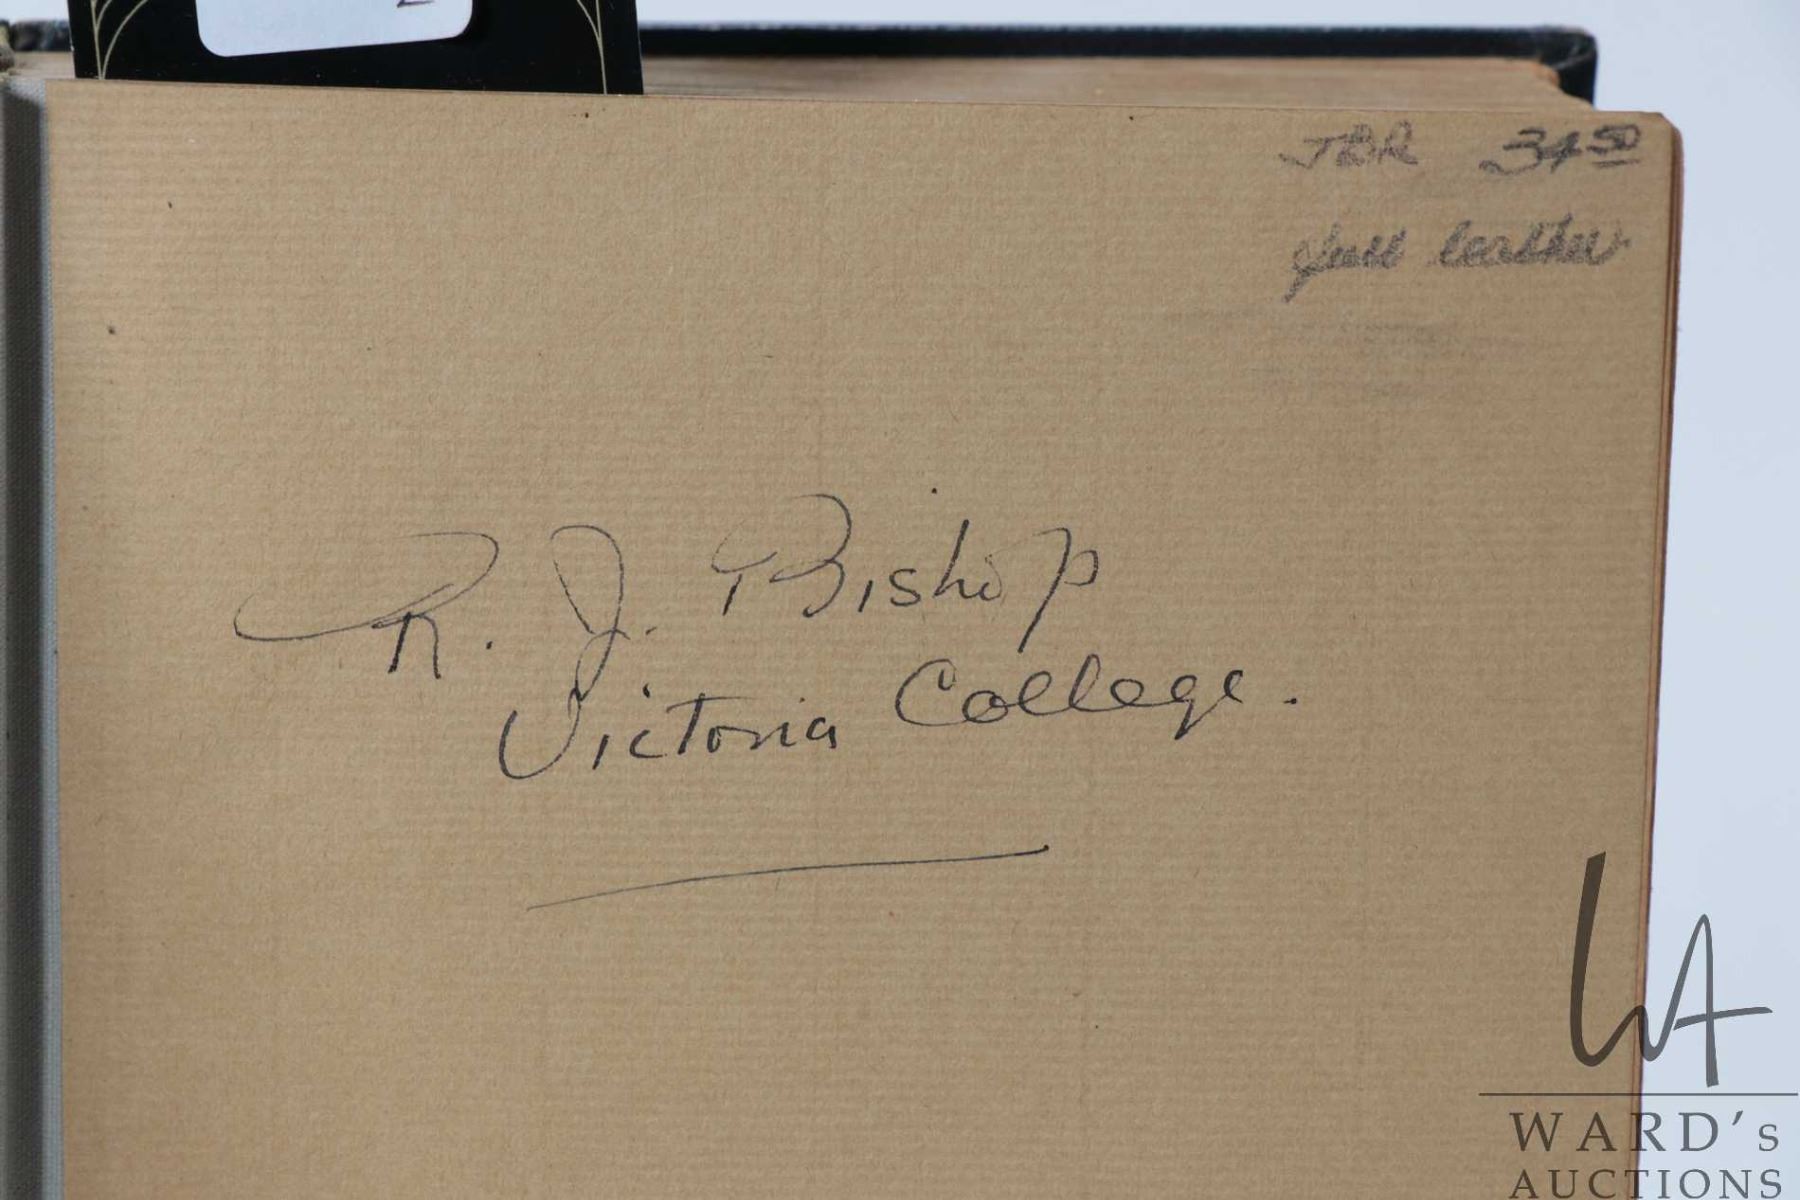 JBR 34.50
full leather
R. J. Bishop
Victoria College.
WARD's
AUCTIONS